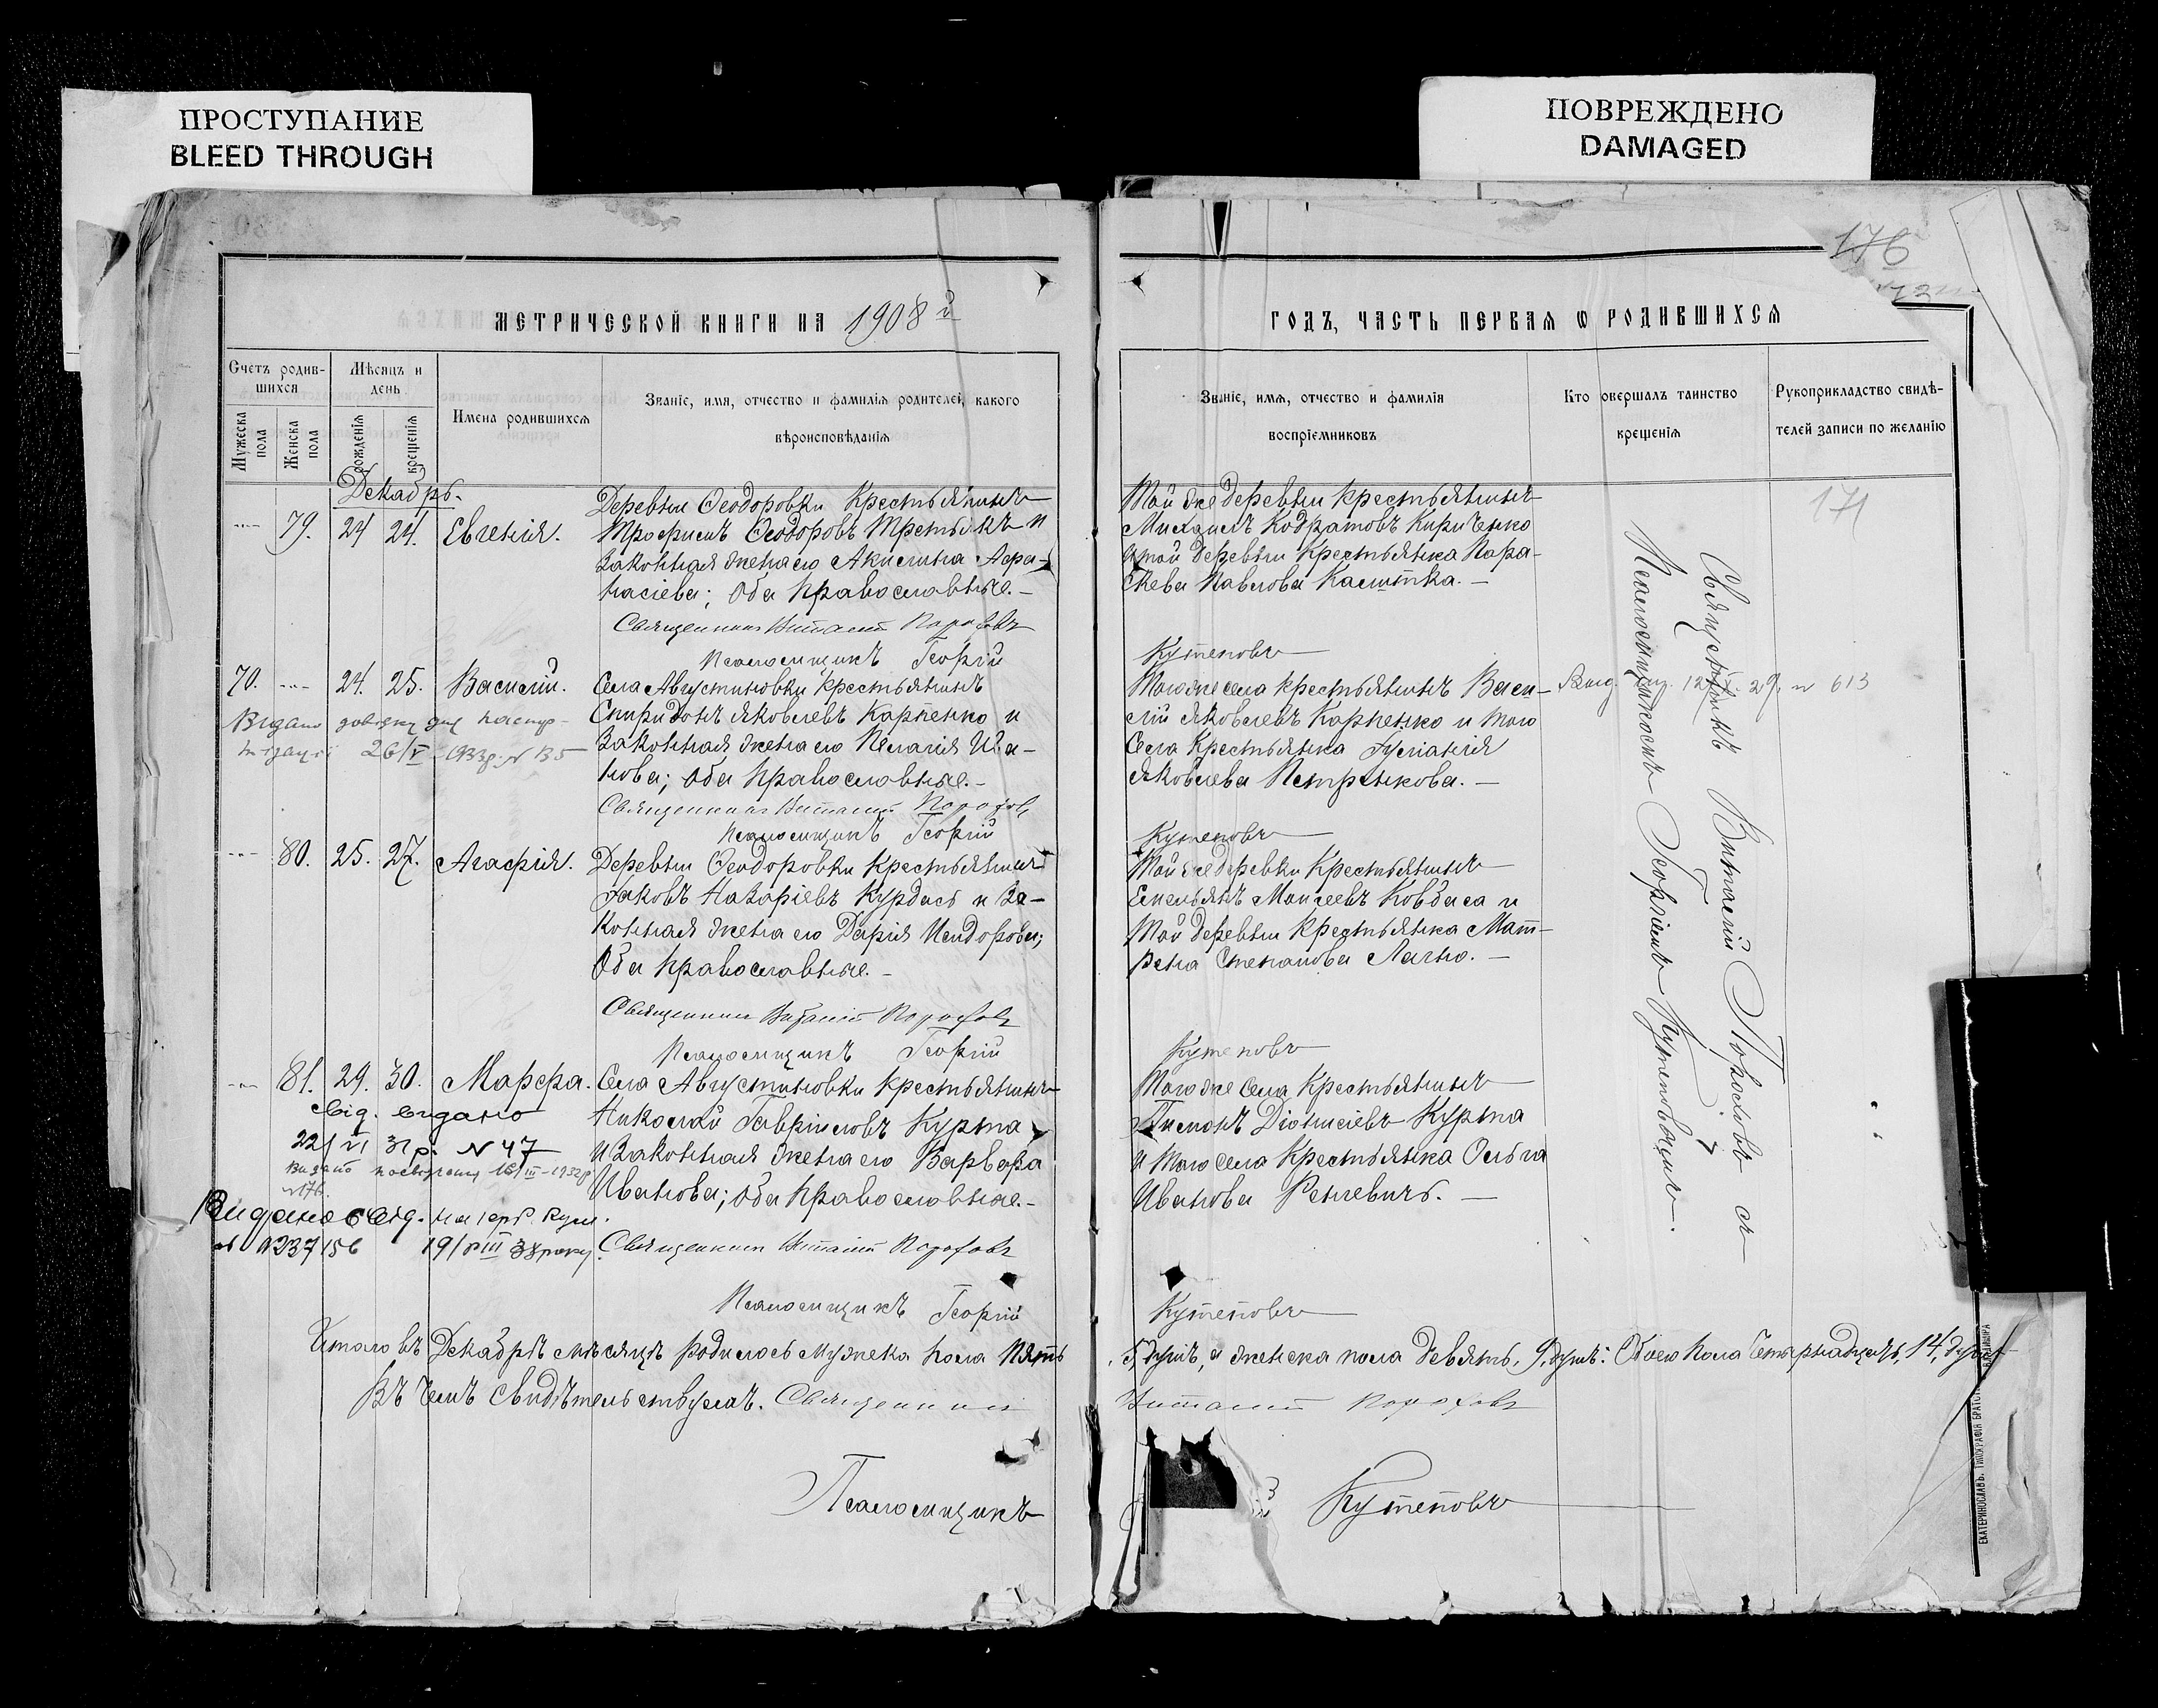 ПРОСТУПАНИЕ
BLEED THROUGH
ПОВРЕЖДЕНО
DAMAGED
МЕТРИЧЕСКОЙ КНИГИ НА 1908й
Счетъ родив-
шихся
Мѣсяцъ и
день
Мужеска
пола
Женска
пола
рожденія
крещенія
Имена родившихся
Званіе, имя, отчество и фамилія родителей, какого
вѣроисповѣданія
Декабрь.
79. 24 24. Евгенія.
Деревни Ѳеодоровки Крестьянинъ
Трофимъ Ѳеодоровъ Третьякъ и
законная жена его Акилина Афа-
насіева; оба православные.-
Священникъ Виталій Пороховъ
Псаломщикъ Георгій
70. 24. 25. Василій.
Села Августиновки крестьянинъ
Спиридонъ Яковлевъ Карпенко и
законная жена его Пелагія Ива-
нова; оба православные.-
Видано довідку для паспор-
тизації 26/V-1933р. N 135
Священникъ Виталій Пороховъ
Псаломщикъ Георгій
80. 25. 27. Агафія.
Деревни Ѳеодоровки крестьянинъ
Іаковъ Назаріевъ Курдась и за-
конная жена его Дарія Исидорова;
оба православные.-
Священникъ Виталій Пороховъ
Псаломщикъ Георгій
81. 29. 30. Марфа.
Села Августиновки крестьянинъ
Николай Гавріиловъ Курта
и законная жена его Варвара
Иванова; оба православные.-
Свід. видано
22/VI 31р. N 47
Видано
N176.
Видано свід. на
N 237156 19/VIII
Священникъ Виталій Пороховъ
Псаломщикъ Георгій
Итого въ Декабрѣ мѣсяцѣ родилось мужеска пола пять
Въ чемъ свидѣтельствуемъ. Священникъ
Псаломщикъ
176
ГОДЪ, ЧАСТЬ ПЕРВАЯ Ѡ РОДИВШИХСЯ
Званіе, имя, отчество и фамилія
воспріемниковъ
Кто совершалъ таинство
крещенія
Рукоприкладство свидѣ-
телей записи по желанію
171
Той же деревни крестьянинъ
Михаилъ Кодратовъ Кириченко
и той деревни крестьянка Пара-
скева Павлова Калитка.-
Кутеповъ
Того же села крестьянинъ Васи-
лій Яковлевъ Карпенко и того
села крестьянка Іуліанія
Яковлева Петренкова.-
613
Кутеповъ
Той же деревни крестьянинъ
Емельянъ Моисеевъ Ковбаса и
той деревни крестьянка Мат-
рена Степанова Лагно.-
Кутеповъ
Того же села крестьянинъ
Пименъ Діонисіевъ Курта
и того села крестьянка Ольга
Иванова Реневичъ.-
Кутеповъ
Священникъ Виталій Пороховъ съ
Псаломщикомъ Георгіемъ Кутеповымъ.
5 душъ, а женска пола девять, 9 душъ: Обоего пола четырнадцать, 14, душъ
Виталій Пороховъ
Кутеповъ
ЕКАТЕРИНОСЛАВЪ. ТИПОГРАФІЯ БРАТСТ